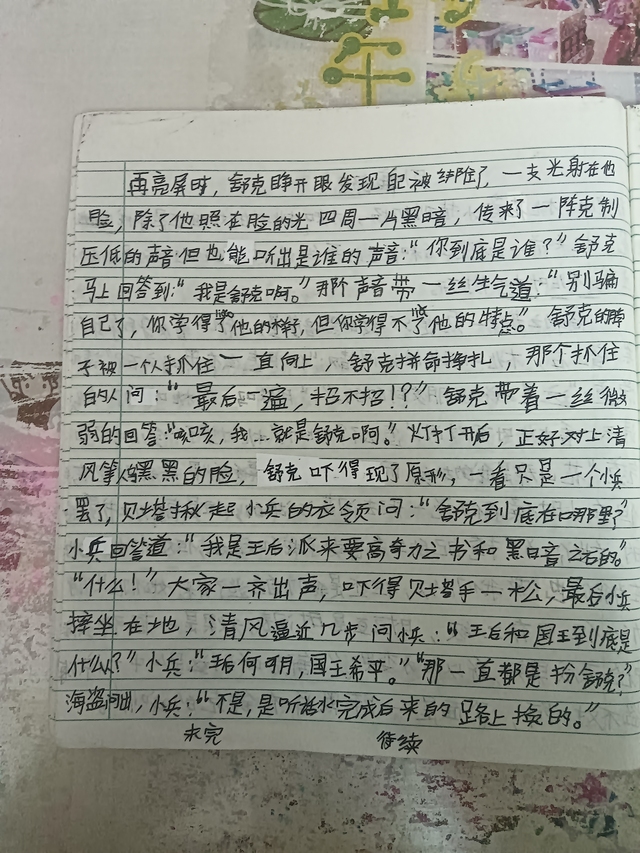 年
再亮屏时，舒克睁开眼发现自己被绑了，一支光射在他
脸，除了他照在脸的光四周一片黑暗，传来了一阵克制
压低的声音但也能听出是谁的声音：“你到底是谁？”舒克
马上回答到：“我是舒克啊。”那个声音带一丝生气道：“别骗
自己了，你学得了他的样子，但你学得不了他的特点。”舒克的脖
子被一个人抓住一直向上，舒克拼命挣扎，那个抓住
的人问：“最后一遍，招不招!？”舒克带着一丝微
弱的回答：“咳咳，我…就是舒克啊。”灯打开后，正好对上清
风黑黑的脸，舒克吓得现了原形，一看只是一个小兵
罢了，贝塔揪起小兵的衣领问：“舒克到底在哪里？”
小兵回答道：“我是王后派来要高奇力之书和黑暗之石的。”
“什么！”大家一齐出声，吓得贝塔手一松，最后小兵
摔坐在地，清风逼近几步问小兵：“王后和国王到底是
什么？”小兵：“王后何明，国王希平。”“那一直都是扮舒克？”
海盗问出，小兵：“不是，是听完成后来的路上换的。”
未完 待续